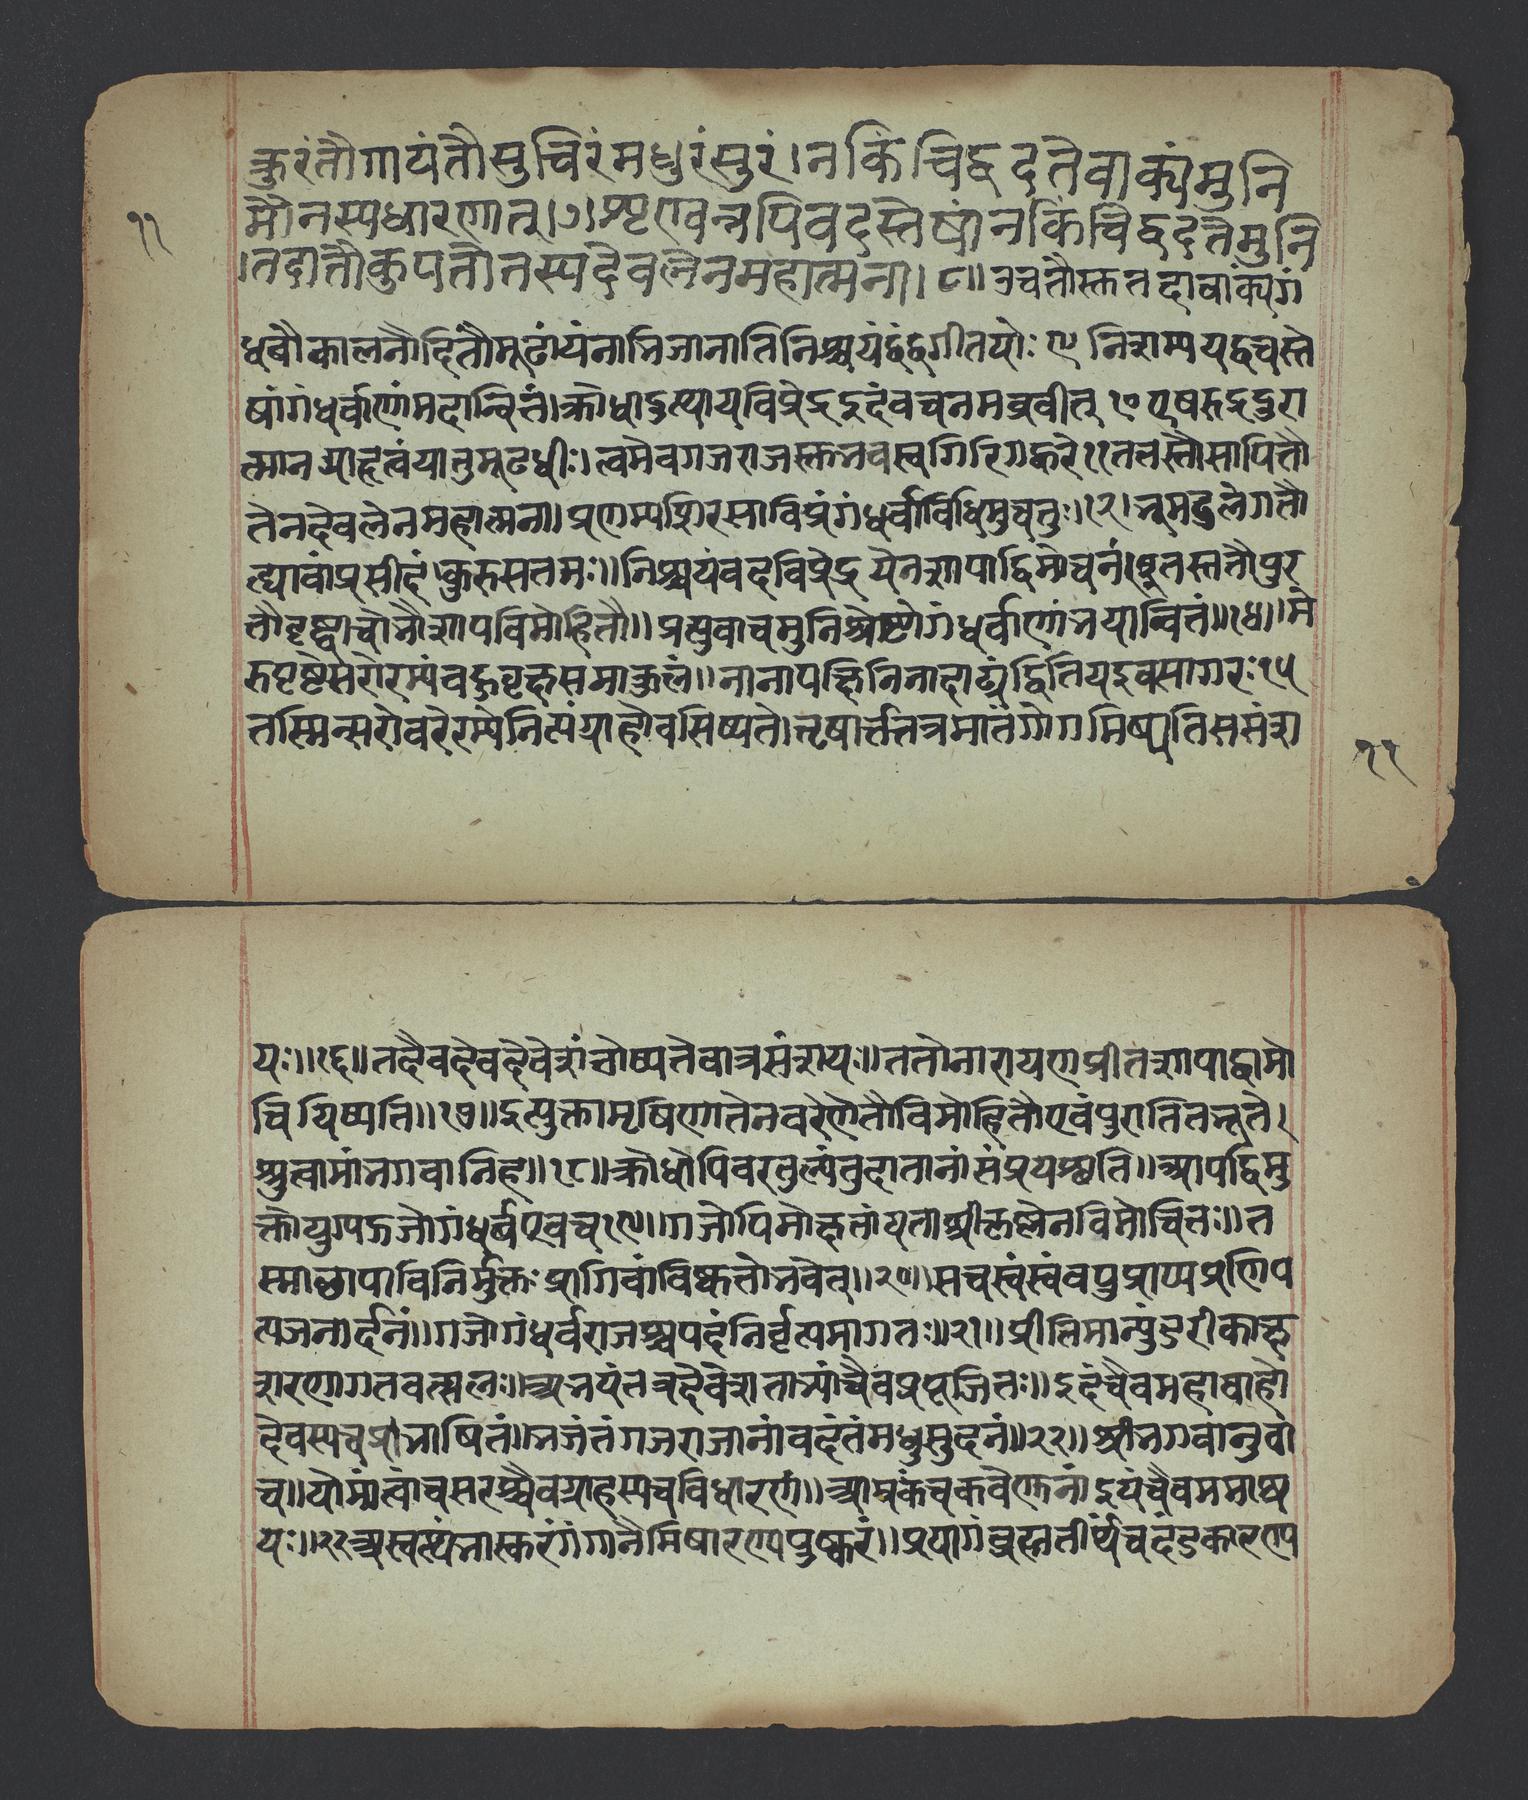 कुरंतौगायंतौसुचिरंमधुरंसुरं।नकिंचिद्वदतेवाक्यंमुनि
११
मौनस्यधारणात्।७।शृण्वन्नपिवदस्तेषांनकिंचिद्वदतेमुनि
।तदातौकुपतौतस्यदेवलेनमहात्मना।८॥उचतौस्ततदावाक्यंगं
धर्वौकालनौदितौमूढायंनाभिजानातिनिश्चयंद्वंद्वगीतयोः९निशम्ययद्वचस्ते
षांगंधर्वाणांमदान्वितं।क्रोधादुत्थायविप्रेंद्रइदंवचनमब्रवीत्१०एषहृद्दुरा
त्मानग्राहत्वंयातुमूढधीः।त्वमेवगजराजस्तभवस्वगिरिगह्वरे११ततस्तौसापितौ
तेनदेवलेनमहात्मना।प्रणम्यशिरसाविप्रंगंधर्वाविधिमुचतुः।१२।भूमदुलेगतौ
ह्यावांप्रसीदंकुरुसतमः॥निश्चयंवदविप्रेंद्रयेनशापाद्विमोचनं।१३ततस्ततौपुर
तौदृष्ट्वाचोभौशापविमोहितौ॥प्रत्युवाचमुनिश्रेष्टोगंधर्वाणांभयान्वितं॥१४॥मे
रुपृष्टेसरोरम्यंवहुवृक्षसमाकुलं॥नानापक्षिनिनादाढ्यंद्वितियइवसागरः१५
तस्मिन्सरोवरेरम्येनित्यंग्राहोवसिष्यते।तृषार्त्ततत्रमातंगोगमिष्यतिससंश
११
यः॥१६॥तदैवदेवदेवेशंचोष्यतेवात्रसंशयः॥ततोनारायणप्रीतशापाद्वामो
चियिष्यति॥१७॥इत्युक्तामृषिणातेनवरेणैतौविमोहितौएवंपुरातितत्कृते।
श्रुत्वामांभगवानिह॥१८॥क्रोधोपिवरतुल्यंतुदातानांसंप्रयश्चति॥आपद्विमु
क्तोयुगपद्गजोगंधर्वएवच१९॥गजोपिमोक्षतांयताश्रीकृष्णेनविमोचितः॥त
स्माछापाविनिर्मुक्तःप्रागिवांविष्कतोभवेत्॥२०॥सचस्वंस्वंवपुप्राप्यप्रणिप
त्यजनार्दनं॥गजोगंधर्वराजश्चपदंनिर्वृत्यमागतः॥२१॥प्रीतिमान्पुंडरीकाक्ष
शरणागतवत्सलः॥अभयंतत्रदेवेशताभ्यांचैवप्रपूजितः॥इदंचैवमहाबाहो
देवस्यचप्राभाषितं॥भजंतंगजराजानांवदंतंमधुसुदनं॥२२॥श्रीभगवानुवा
च॥योमांत्वांचसरश्चैवग्राहस्यचविधारणं॥आम्रकंचकवेण्तनांइयंचैवममाष
यः॥२३अस्वत्थंभास्करंगंगानैमिषारण्यपुष्करं॥प्रयागंब्रह्मतीर्थंचदंडकारण्य